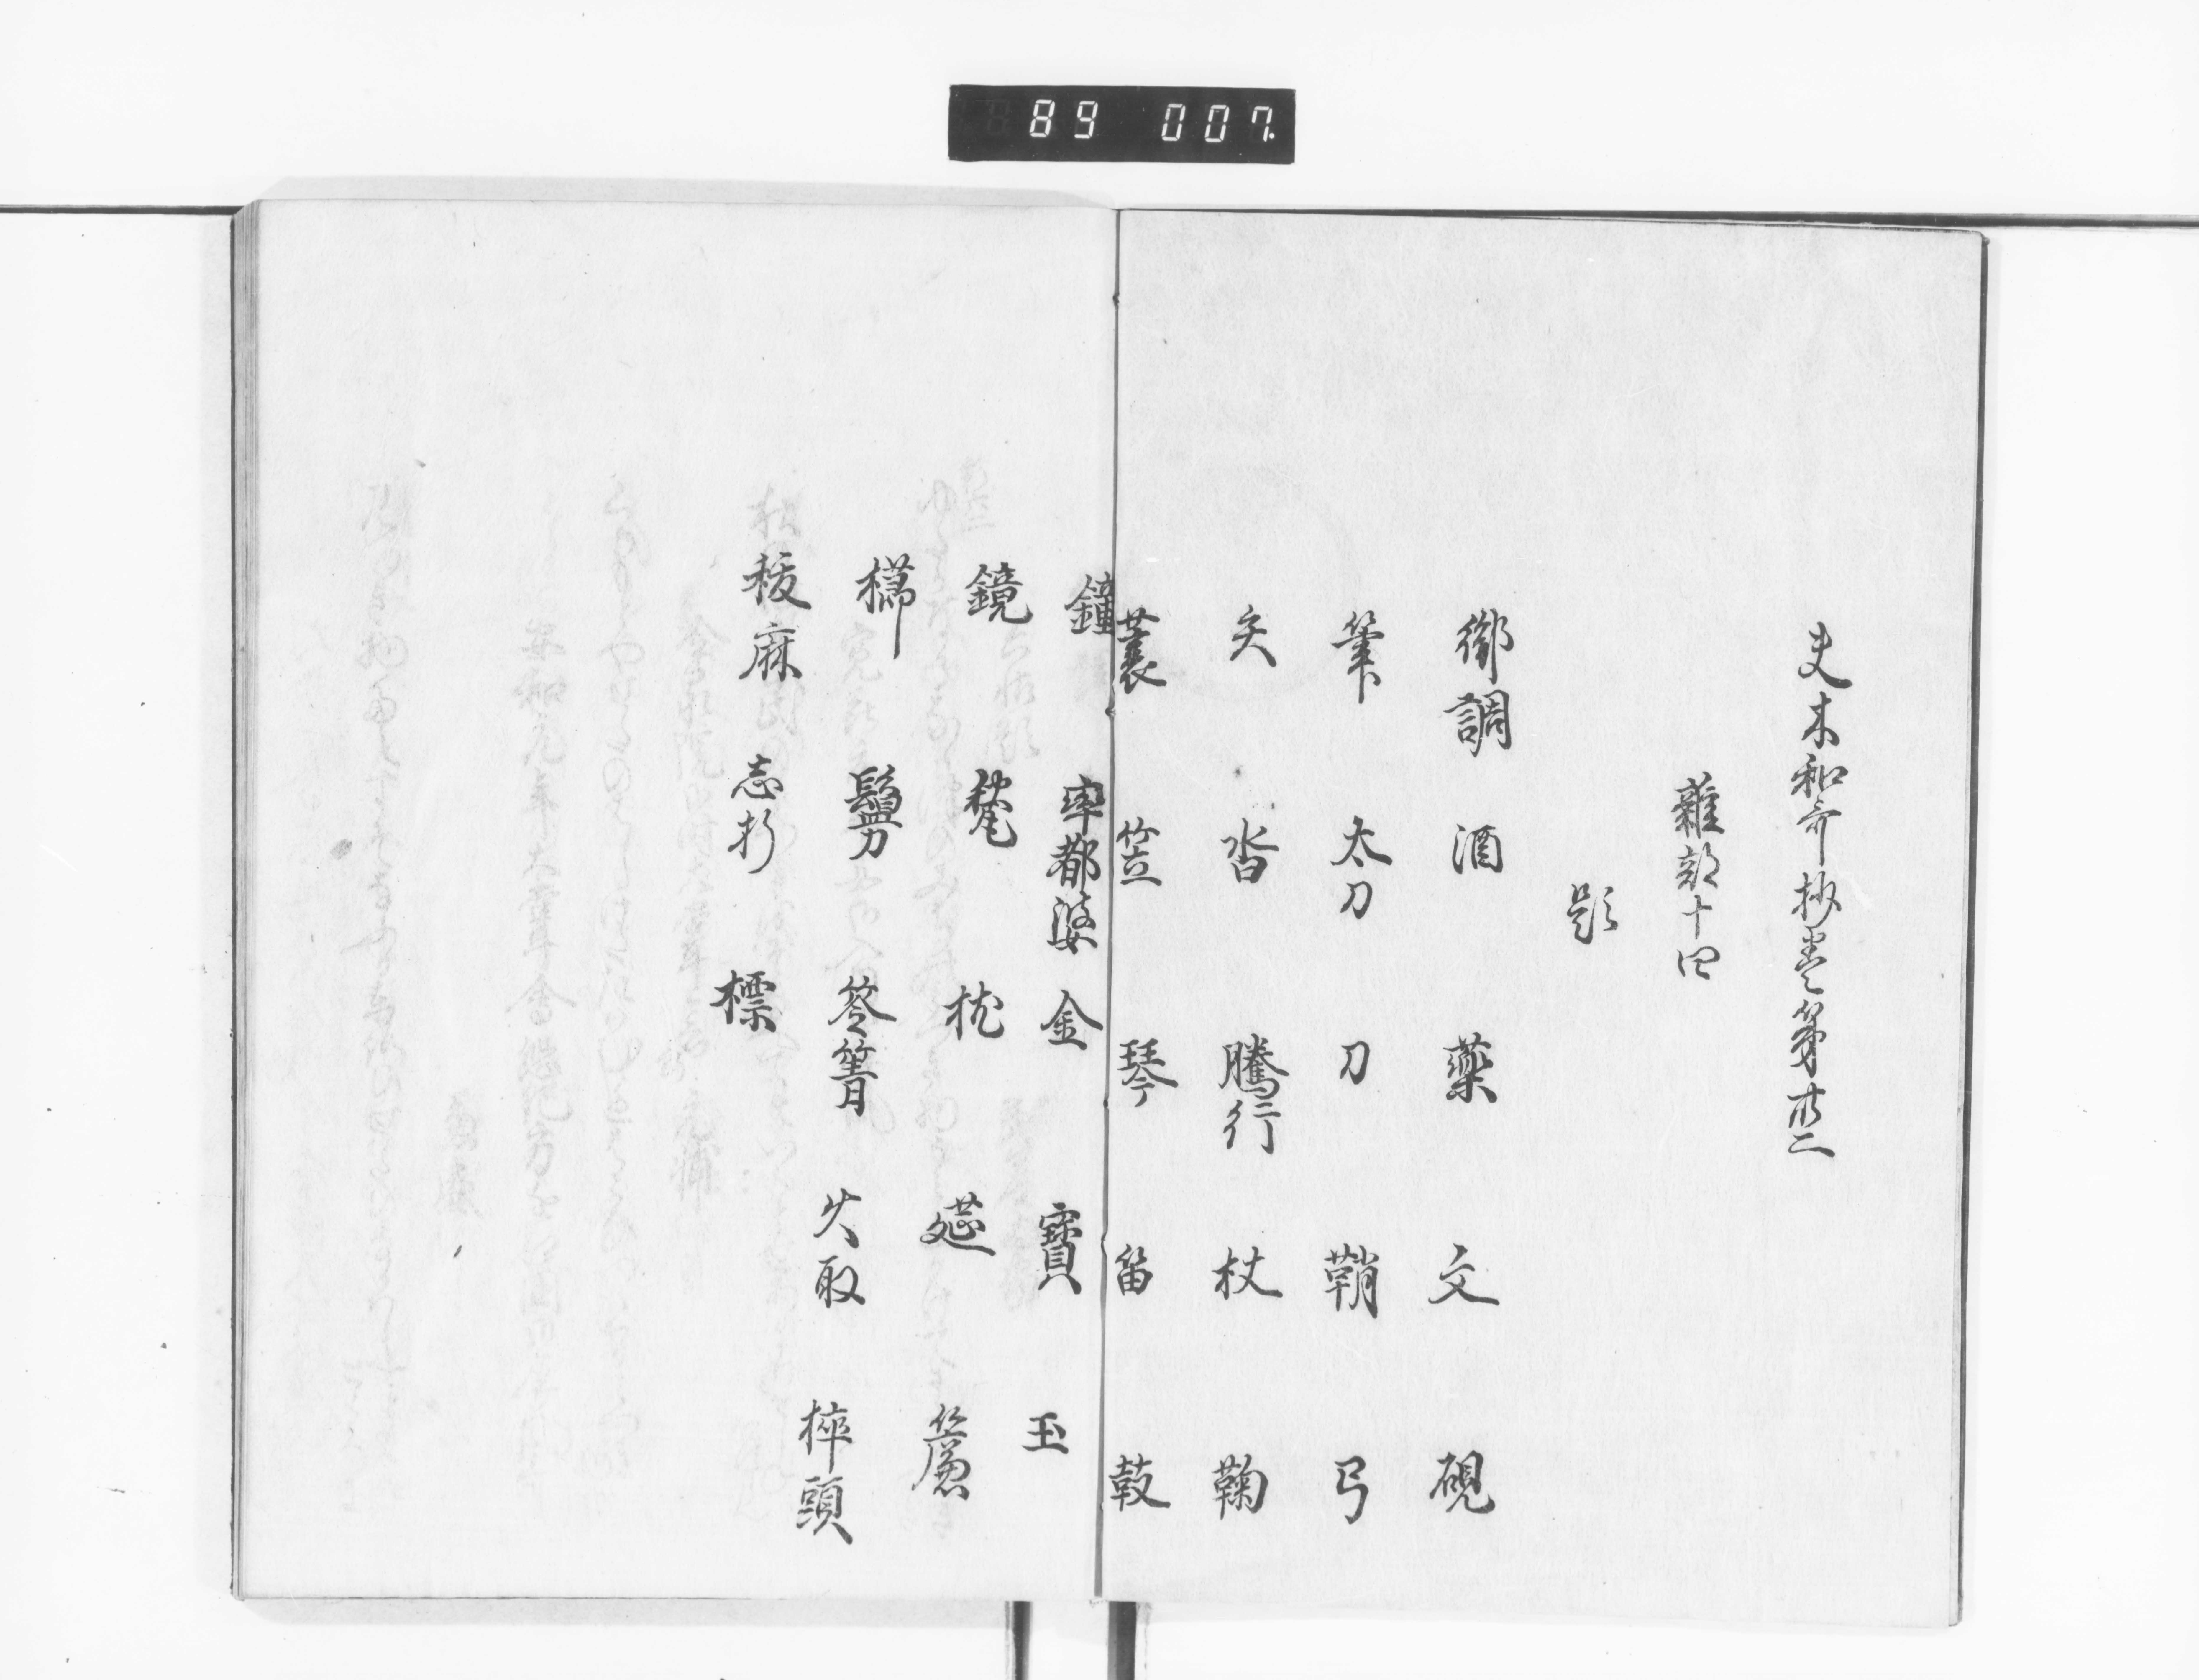 89 007.
夫木和哥抄巻第卅二
雜部十四
題
御調 酒 藥 文 硯
筆 太刀 刀 鞘 弓
矢 沓 騰行 杖 鞠
蓑 笠 琴 笛 鼓
鐘 率都婆 金 寶 玉
鏡 枕 莚 簾
櫛 鬘 笭箐 火取 頭
麻 志折 標